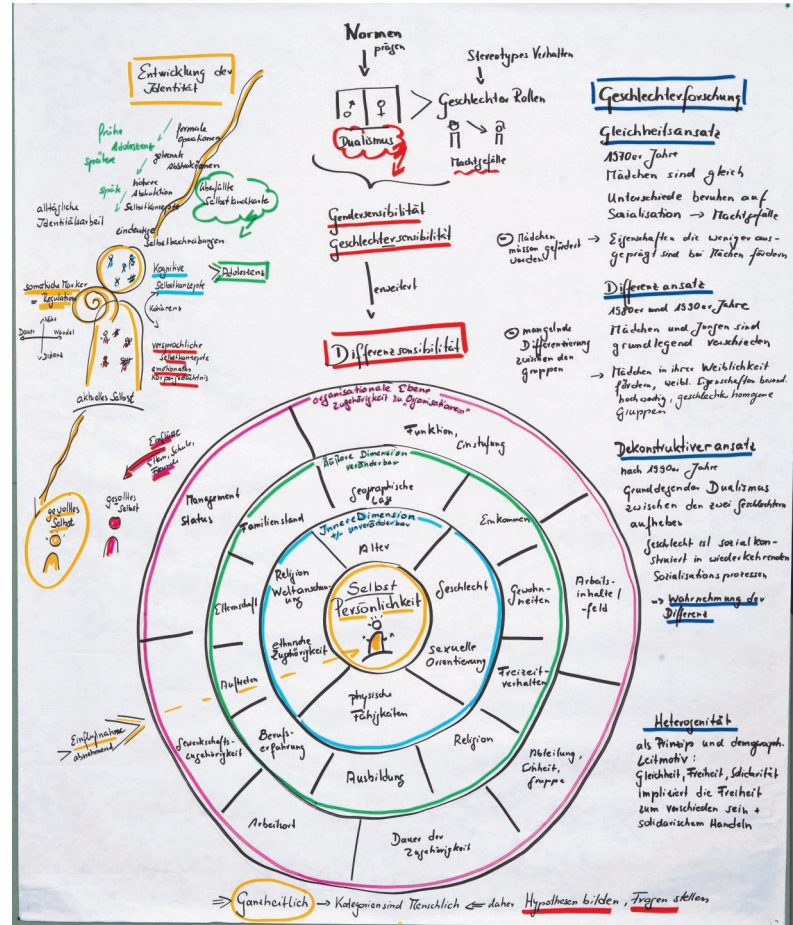 Entwicklung der
Identität
frühe
Adoleszenz
spätere
spät
formale
Operationen
höhere
Abstraktion
Selbstkonzepte
eindeutige
Selbstbeschreibungen
alltägliche
Identitätsarbeit
überfüllte
Selbstlandkarte
Kognitive
Selbstkonzepte
> Adoleszenz
somatische Marker
= Regulation
Kohärenz
Nähe
Dauer
Wandel
Distanz
vorsprachliche
Selbstkonzepte
emotionales
Körpergedächtnis
aktuelles Selbst
Einflüsse
Eltern, Schule,
Freunde
gewolltes
Selbst
gesolltes
Selbst
Normen
prägen
Stereotypes Verhalten
♂ ♀
Geschlechter Rollen
Dualismus
Machtgefälle
Gendersensibilität
Geschlechtersensibilität
erweitert
Differenzsensibilität
Geschlechterforschung
Gleichheitsansatz
1970er Jahre
Mädchen sind gleich
Unterschiede beruhen auf
Sozialisation → Machtgefälle
⊖ Mädchen
müssen gefördert
werden
→ Eigenschaften die weniger aus-
geprägt sind bei Mächen fördern
Differenzansatz
1980er und 1990er Jahre
Mädchen und Jungen sind
grundlegend verschieden
mangelnde
Differenzierung
zwischen den
gruppen
→ Mädchen in ihrer Weiblichkeit
fördern, weibl. Eigenschaften besond.
hochwertig, geschlechts homogene
Gruppen
Dekonstruktiver ansatz
nach 1990er Jahre
Dualismus
zwischen den zwei Geschlechtern
aufheben
Geschlecht ist sozial kon-
struiert in wiederkehrenden
Sozialisationsprozessen
⇒ Wahrnehmung der
Differenz
Heterogenität
als Prinzip und demograph.
Leitmotiv:
Gleichheit, Freiheit, Solidarität
impliziert die Freiheit
zum verschieden sein +
solidarischem Handeln
organisationale Ebene
"Zugehörigkeit zu Organisationen"
Funktion,
Einstufung
Management
Status
Arbeits-
inhalte/
-feld
Abteilung,
Einheit,
gruppe
Dauer der
Zugehörigkeit
Arbeitsort
Gewerkschafts-
zugehörigkeit
Äußere Dimension
veränderbar
geographische
Lage
Einkommen
Gewohn-
heiten
Freizeit-
verhalten
Religion
Ausbildung
Berufs-
erfahrung
Auftreten
Elternschaft
Familienstand
Innere Dimension
+/- unveränderbar
Alter
Geschlecht
sexuelle
Orientierung
physische
Fähigkeiten
ethnische
Zugehörigkeit
Religion
Weltanschau-
ung
Selbst
Persönlichkeit
Einflußnahme
abnehmend
⇒ Ganzheitlich → Kategorien sind Menschlich ⇐ daher Hypothesen bilden, Fragen stellen